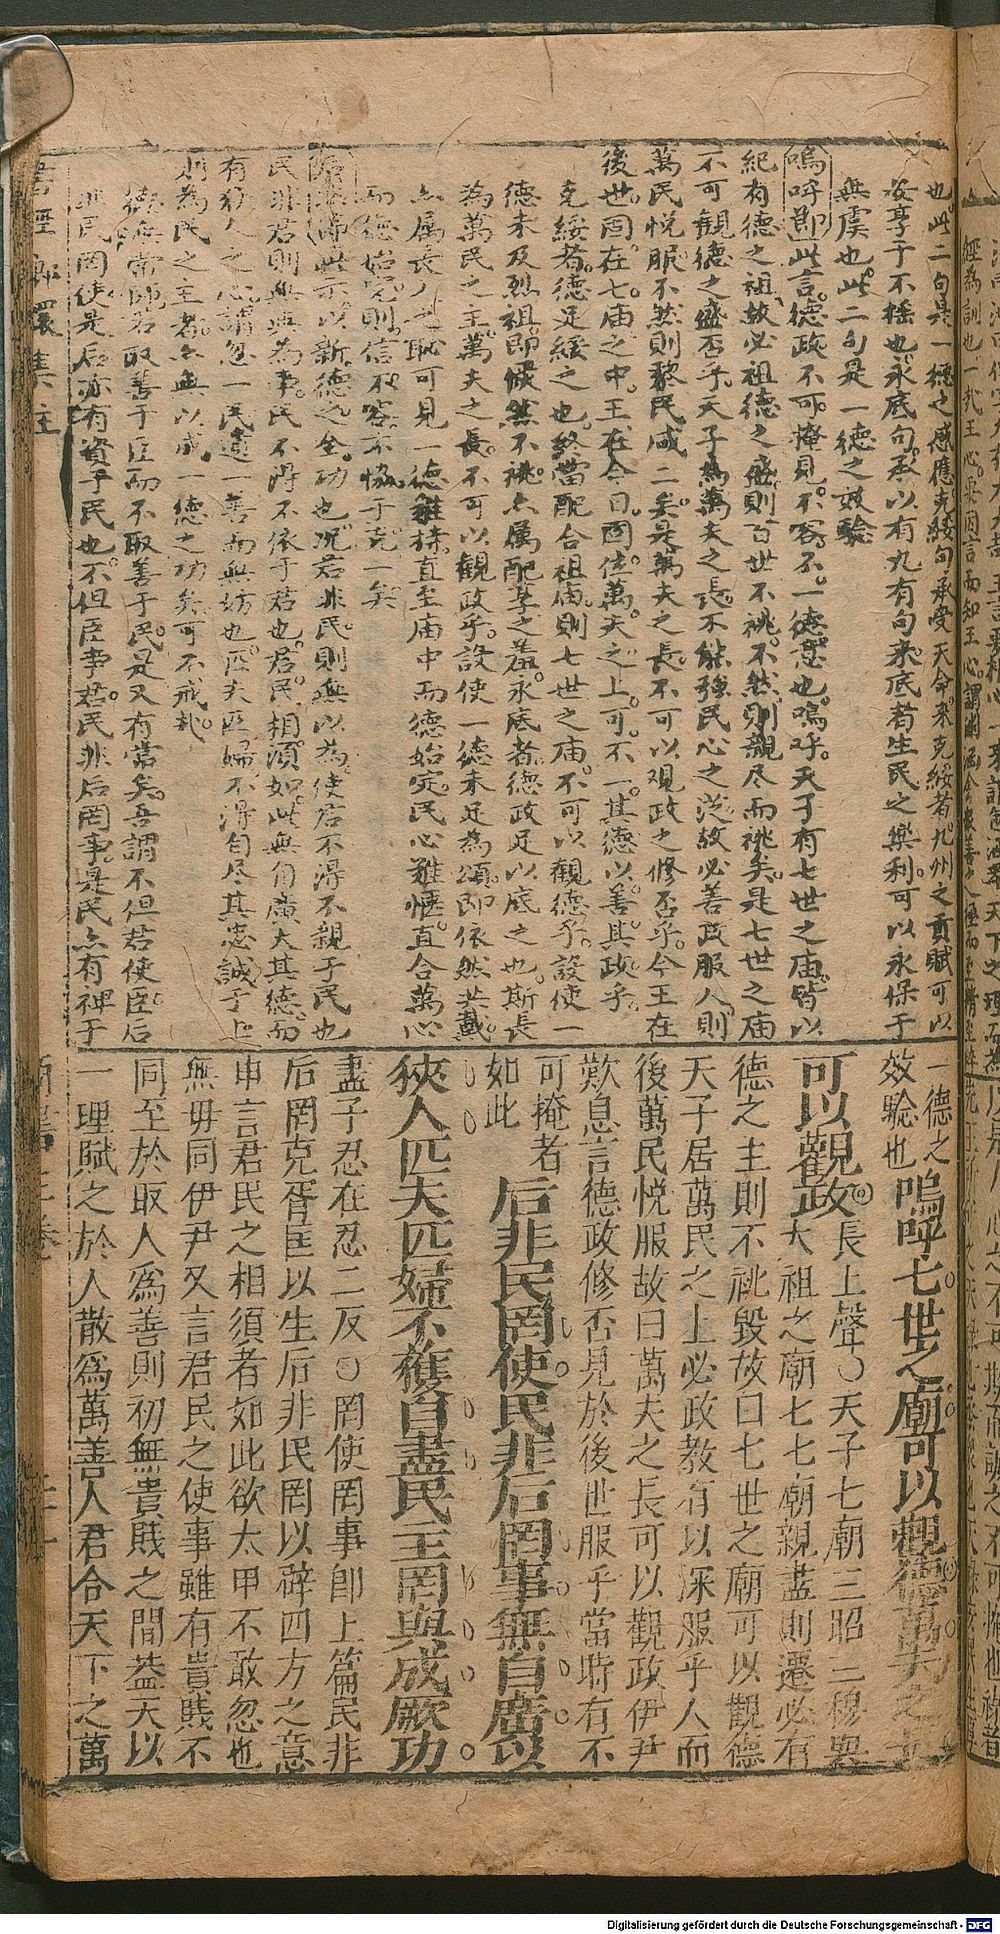 也此二句是一德之感應克綏句承受天命来克綏者九州之貢賦可以
安享于不搖也永底句承以有九有句来底者生民之樂利可以永保于
無虞也此二句是一德之效驗
嗚呼節此言德政不可掩見不容不一德意也嗚呼天子有七世之庙皆以
紀有德之祖故必祖德之盛則百世不祧不然則親尽而祧矣是七世之庙
不可觀德之盛否乎天子為萬夫之長不能強民心之從故必善政服人則
萬民悦服不然則黎民咸二矣是萬夫之長不可以观政之修否乎今王在
後世固在七庙之中王在今日固位萬夫之上可不一其德以善其政乎
克綏者德足綏之也終當配合祖庙則七世之庙不可以觀德乎設使一
德未及烈祖即候然不祧亦属配享之羞永底者德政足以底之也斯長
為萬民之主萬夫之長不可以觀政乎設使一德未足為頌即依然共戴
亦属長人之恥可見一德難持直至庙中而德始定民心難愜直合萬心
而德始完則信不容不協于克一矣
民非君則無與為事民不得不依于君也君民相湏如此無自廣大其德而
有狹人之心謂忽一民遺一善而無妨也匹夫匹婦不得自尽其忠誠于上
則為民之主者亦無以成一德之功矣可不戒哉
德無常師若取善于臣而不取善于民是又有常矣吾謂不但君使臣后
非民罔使是后亦有資于民也不但臣事君民非后罔事是民亦有裨于
一德之
效驗也
嗚呼七世之廟可以觀德萬夫之長
可以觀政
長上聲○天子七廟三昭三穆與
大祖之廟七七廟親盡則遷必有
德之主則不祧毀故曰七世之廟可以觀德
天子居萬民之上必政教有以深服乎人而
後萬民悦服故曰萬夫之長可以觀政伊尹
歎息言德政修否見於後世服乎當時有不
可掩者
如此
后非民罔使民非后罔事無自廣以
狹人匹夫匹婦不獲自盡民主罔與成厥功
盡子忍在忍二反○罔使罔事即上篇民非
后罔克胥匡以生后非民罔以辟四方之意
申言君民之相須者如此欲太甲不敢忽也
無毋同伊尹又言君民之使事雖有貴賤不
同至於取人爲善則初無貴賤之間葢天以
一理賦之於人散爲萬善人君合天下之萬
書經
集註
商書三卷
Digitalisierung gefördert durch die Deutsche Forschungsgemeinschaft - DFG